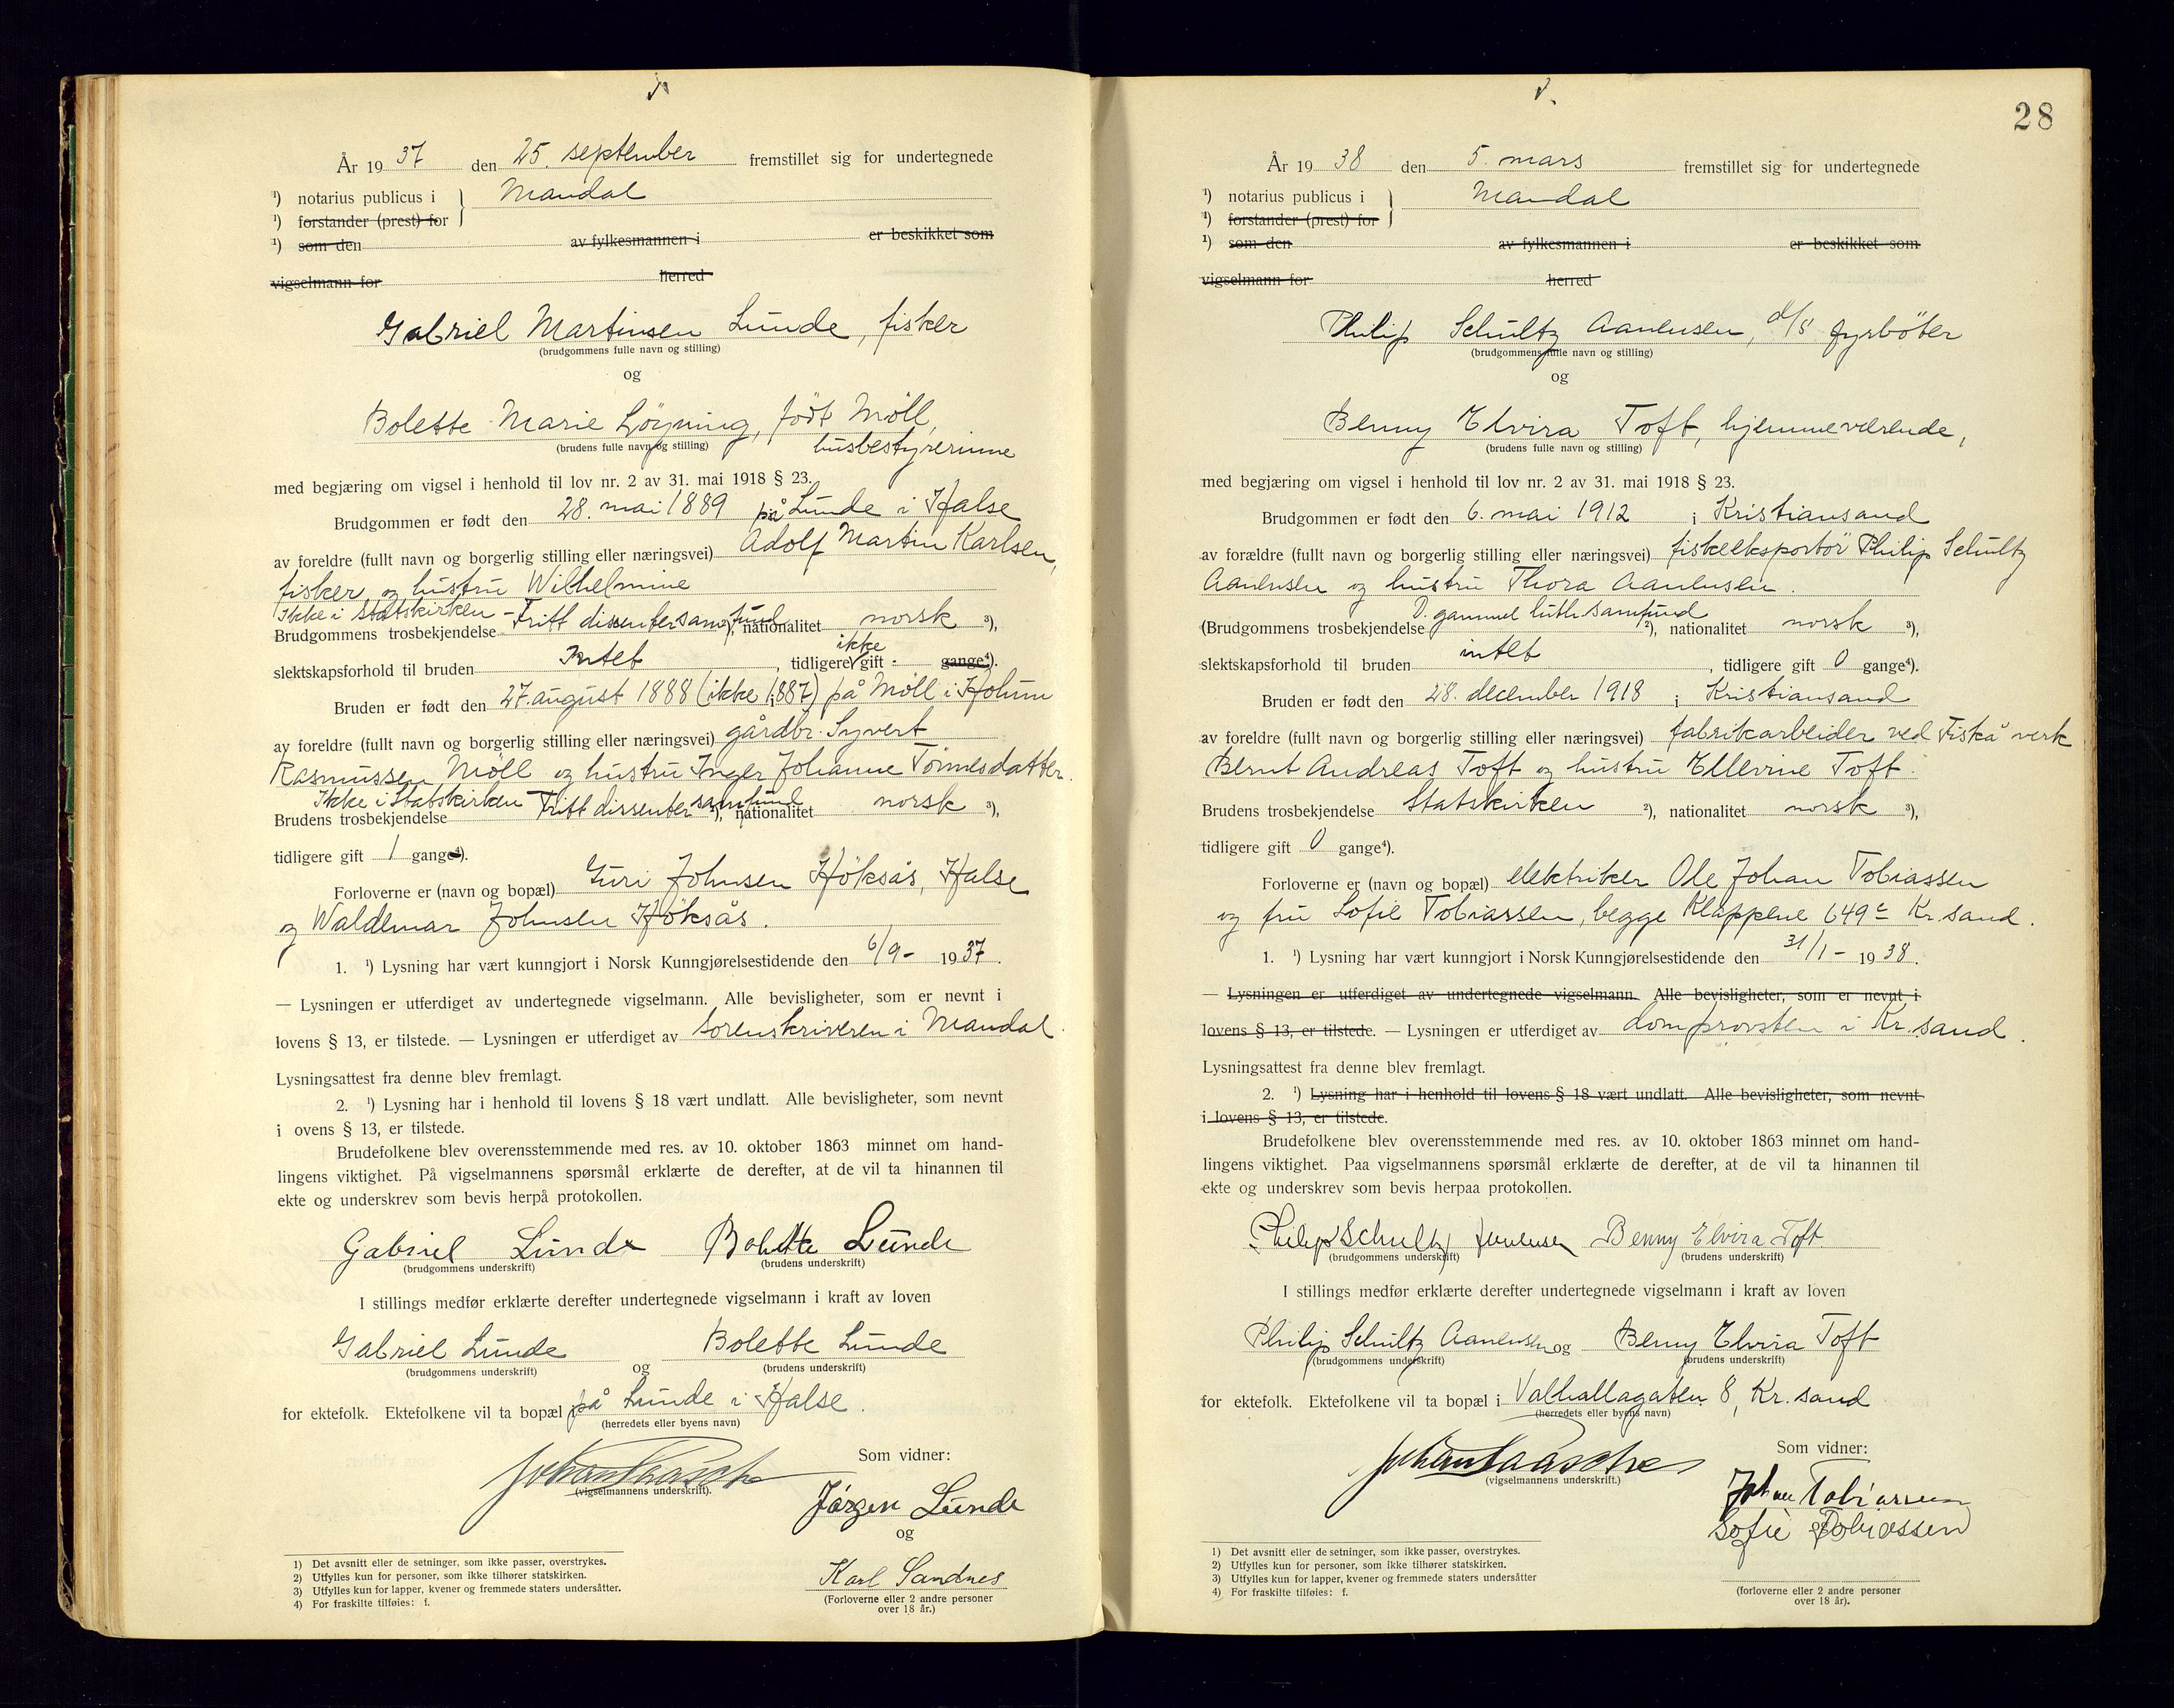 År 19 37 den 25. september fremstillet sig for undertegnede
¹) notarius publicus i } Mandal
¹) forstander (prest) for
¹) som den av fylkesmannen i er beskikket som
vigselmann for herred
Gabriel Martinsen Lunde, fisker
(brudgommens fulle navn og stilling)
og
Bolette Marie Löyning, født Möll,
(brudens fulle navn og stilling) husbestyrerinne
med begjæring om vigsel i henhold til lov nr. 2 av 31. mai 1918 § 23.
Brudgommen er født den 28. mai 1889 på Lunde i Halse
av foreldre (fullt navn og borgerlig stilling eller næringsvei) Adolf Martin Karlsen,
fisker og hustru Wilhelmine
Ikke i Statskirken -
Brudgommens trosbekjendelse Fritt dissentersamfund ²), nationalitet norsk ³),
slektskapsforhold til bruden Intet, tidligere ikke gift - gange⁴).
Bruden er født den 27. august 1888 (ikke 1887) på Möll i Holum
av foreldre (fullt navn og borgerlig stilling eller næringsvei) gårdbr. Syvert
Rasmussen Möll og hustru Inger Johanne Tönnesdatter.
Ikke i Statskirken
Brudens trosbekjendelse Fritt dissentersamfund ²), nationalitet norsk ³),
tidligere gift 1 gange⁴).
Forloverne er (navn og bopæl) Guri Johnsen Höksås, Halse
og Waldemar Johnsen Höksås.
1. ¹) Lysning har vært kunngjort i Norsk Kunngjørelsestidende den 6/9- 19 37.
— Lysningen er utferdiget av undertegnede vigselmann. Alle bevisligheter, som er nevnt i
lovens § 13, er tilstede. — Lysningen er utferdiget av sorenskriveren i Mandal.
Lysningsattest fra denne blev fremlagt.
2. ¹) Lysning har i henhold til lovens § 18 vært undlatt. Alle bevisligheter, som nevnt
i ovens § 13, er tilstede.
Brudefolkene blev overensstemmende med res. av 10. oktober 1863 minnet om hand-
lingens viktighet. På vigselmannens spørsmål erklærte de derefter, at de vil ta hinannen til
ekte og underskrev som bevis herpå protokollen.
Gabriel Lunde Bolette Lunde
(brudgommens underskrift) (brudens underskrift)
I stillings medfør erklærte derefter undertegnede vigselmann i kraft av loven
Gabriel Lunde og Bolette Lunde
(brudgommens underskrift) (brudens underskrift)
for ektefolk. Ektefolkene vil ta bopæl på Lunde i Halse.
(herredets eller byens navn)
Johan Paasche
(vigselmannens underskrift).
Som vidner:
Jörgen Lunde
og
Karl Sandnes
(Forloverne eller 2 andre personer
over 18 år.)
1) Det avsnitt eller de setninger, som ikke passer, overstrykes.
2) Utfylles kun for personer, som ikke tilhører statskirken.
3) Utfylles kun for lapper, kvener og fremmede staters undersåtter.
4) For fraskilte tilføies: f.
28
År 19 38 den 5. mars fremstillet sig for undertegnede
¹) notarius publicus i } Mandal
¹) forstander (prest) for
¹) som den av fylkesmannen i er beskikket som
vigselmann for herred
Philip Schultz Aanensen, d/s fyrböter
(brudgommens fulle navn og stilling)
og
Benny Elvira Toft, hjemmeværende,
(brudens fulle navn og stilling)
med begjæring om vigsel i henhold til lov nr. 2 av 31. mai 1918 § 23.
Brudgommen er født den 6. mai 1912 i Kristiansand
av forældre (fullt navn og borgerlig stilling eller næringsvei) fiskeeksportör Philip Schultz
Aanensen og hustru Thora Aanensen.
(Brudgommens trosbekjendelse D. gammel luth. samfund ²), nationalitet norsk ³),
slektskapsforhold til bruden intet, tidligere gift 0 gange⁴).
Bruden er født den 28. december 1918 i Kristiansand
av foreldre (fullt navn og borgerlig stilling eller næringsvei) fabrikarbeider ved Fiskå verk
Bernt Andreas Toft og hustru Ellevine Toft.
Brudens trosbekjendelse Statskirken ²), nationalitet norsk ³),
tidligere gift 0 gange⁴).
Forloverne er (navn og bopæl) elektriker Ole Johan Tobiassen
og fru Sofie Tobiassen, begge Klappene 649 c Kr.sand.
1. ¹) Lysning har vært kunngjort i Norsk Kunngjørelsestidende den 31/1- 19 38.
— Lysningen er utferdiget av undertegnede vigselmann. Alle bevisligheter, som er nevnt i
lovens § 13, er tilstede. — Lysningen er utferdiget av domprovsten i Kr.sand.
Lysningsattest fra denne blev fremlagt.
2. ¹) Lysning har i henhold til lovens § 18 vært undlatt. Alle bevisligheter, som nevnt
i lovens § 13, er tilstede.
Brudefolkene blev overensstemmende med res. av 10. oktober 1863 minnet om hand-
lingens viktighet. Paa vigselmannens spørsmål erklærte de derefter, at de vil ta hinannen til
ekte og underskrev som bevis herpaa protokollen.
Philip Schultz Aanensen Benny Elvira Toft.
(brudgommens underskrift) (brudens underskrift)
I stillings medfør erklærte derefter undertegnede vigselmann i kraft av loven
Philip Schultz Aanensen og Benny Elvira Toft
(brudgommens underskrift) (brudens underskrift)
for ektefolk. Ektefolkene vil ta bopæl i Valhallagaten 8, Kr.sand
(herredets eller byens navn)
Johan Paasche
(vigselmannens underskrift.)
Som vidner:
Johan Tobiassen
og
Sofie Tobiassen
(forloverne eller 2 andre personer
over 18 år).
1) Det avsnitt eller de setninger, som ikke passer, overstrykes.
2) Utfylles kun for personer, som ikke tilhører statskirken.
3) Utfylles kun for lapper, kvener og fremmede staters undersåtter
4) For fraskilte tilføies: f.